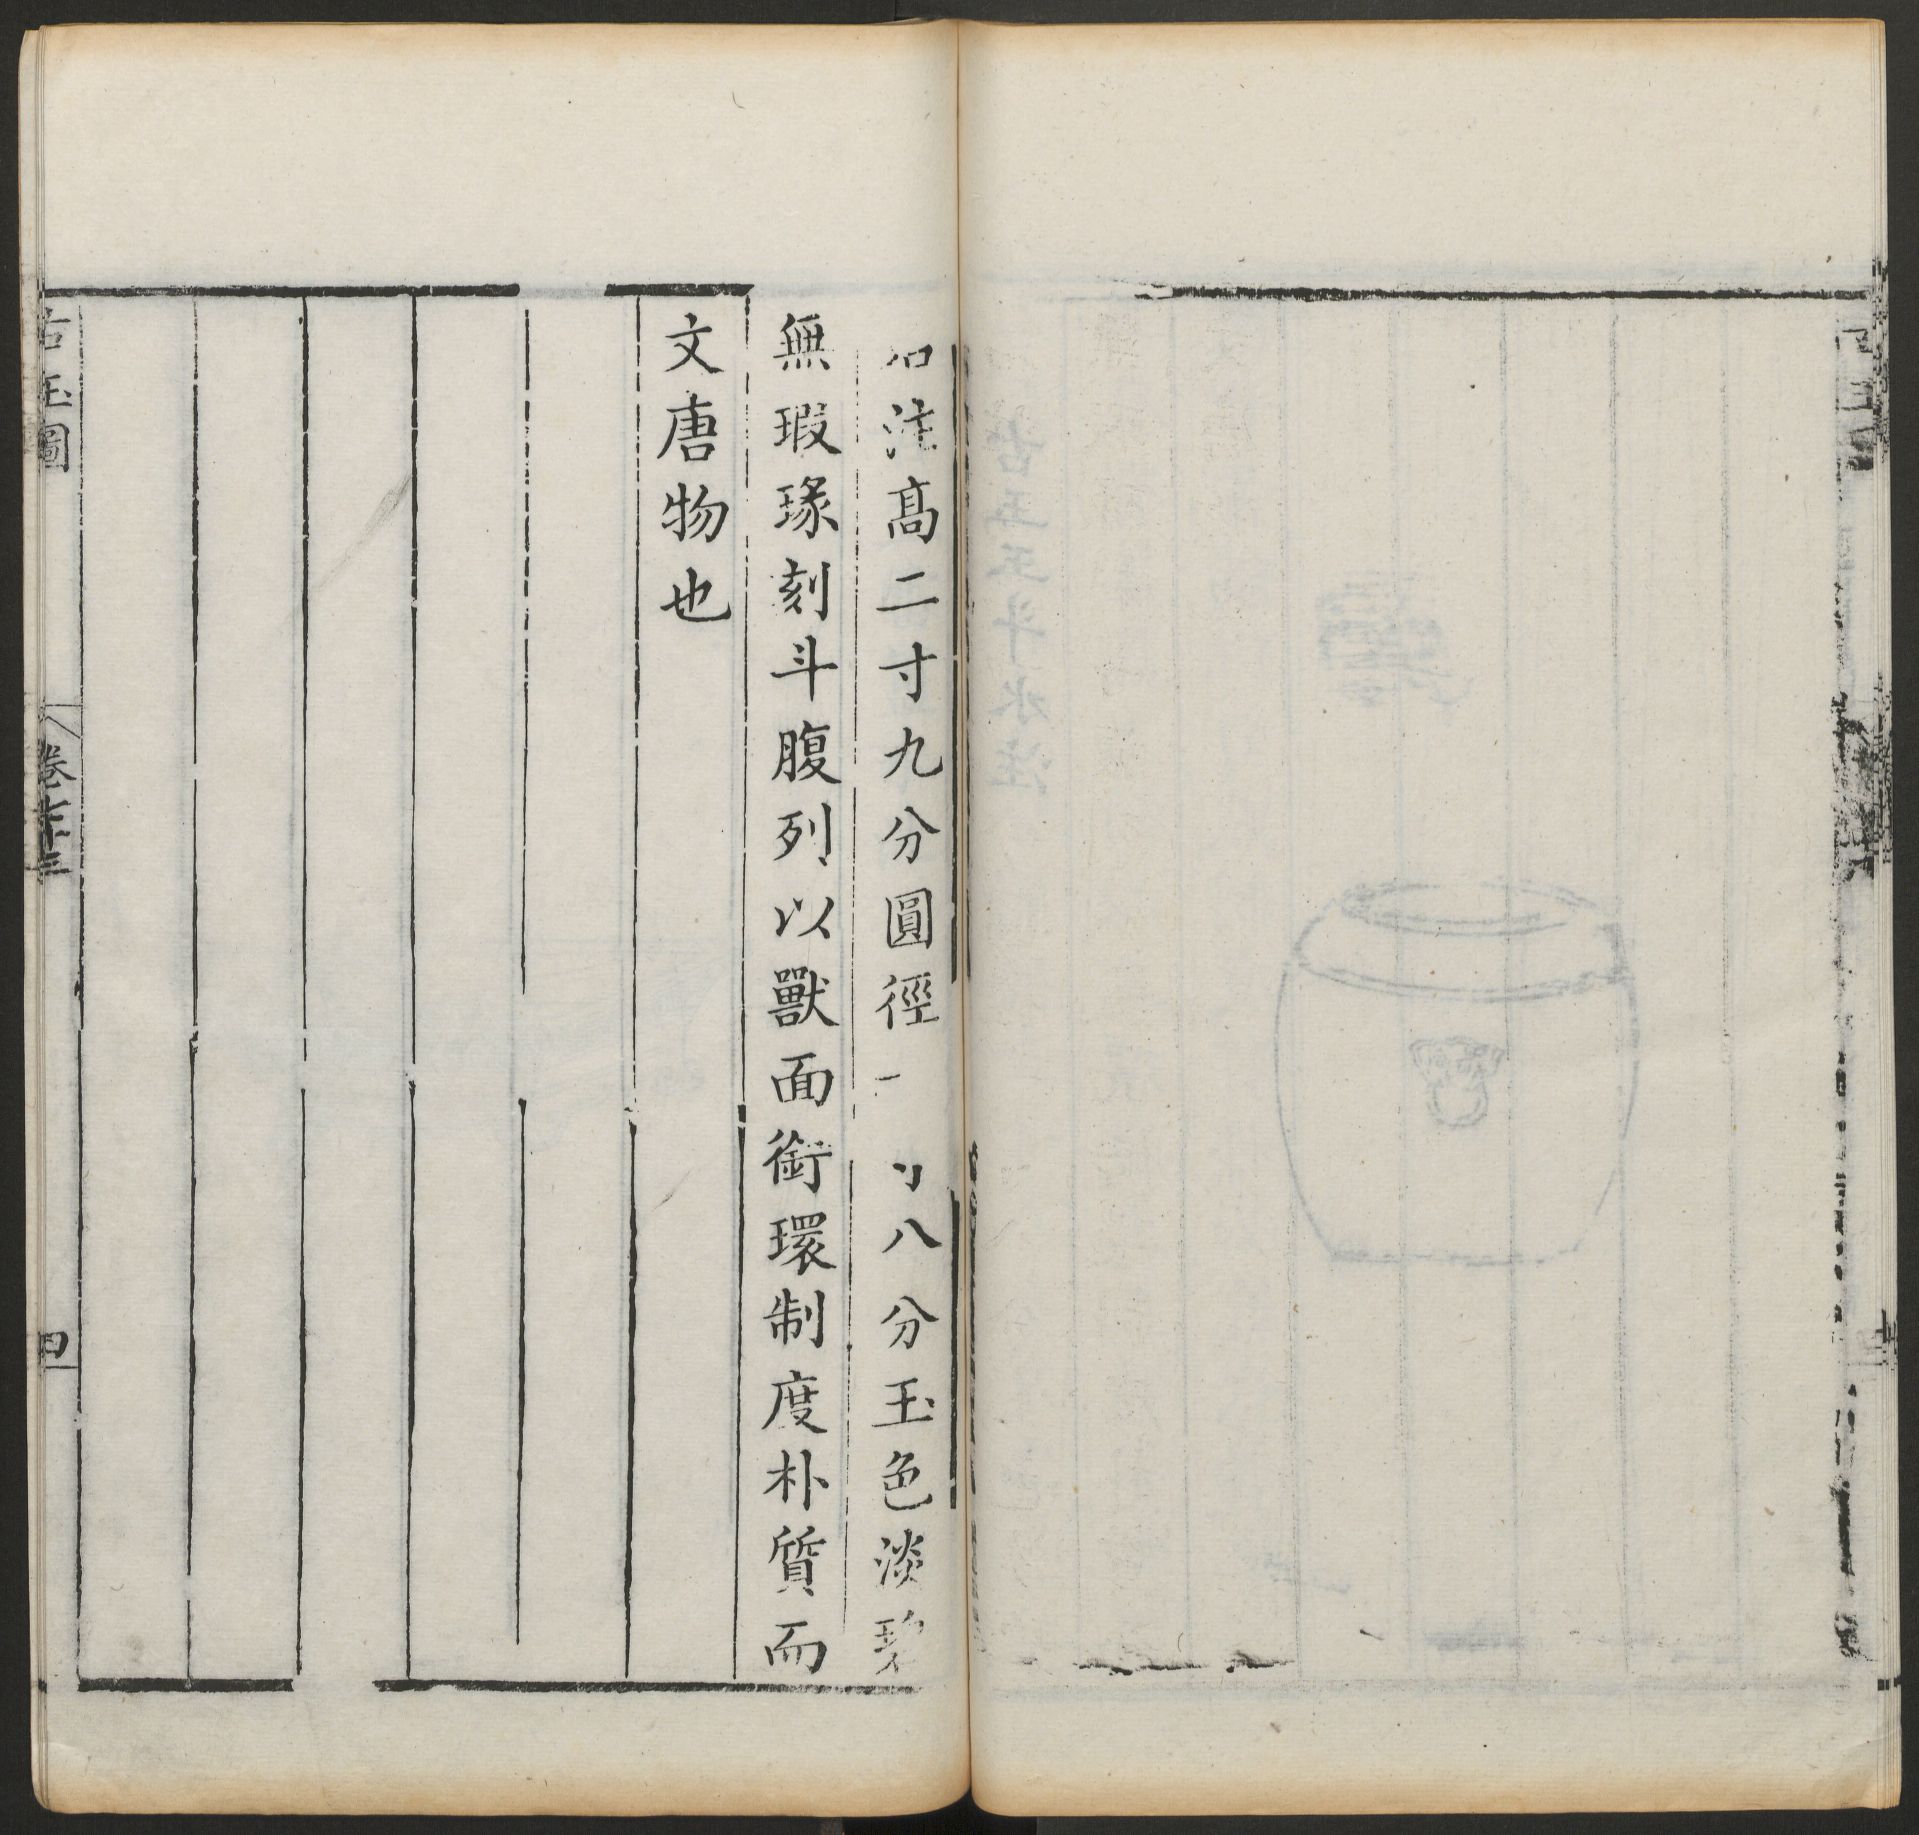 右注高二寸九分圓徑一寸八分玉色淡碧
無瑕瑑刻斗腹列以獸面銜環制度朴質而
文唐物也
古玉圖
卷六十三
四